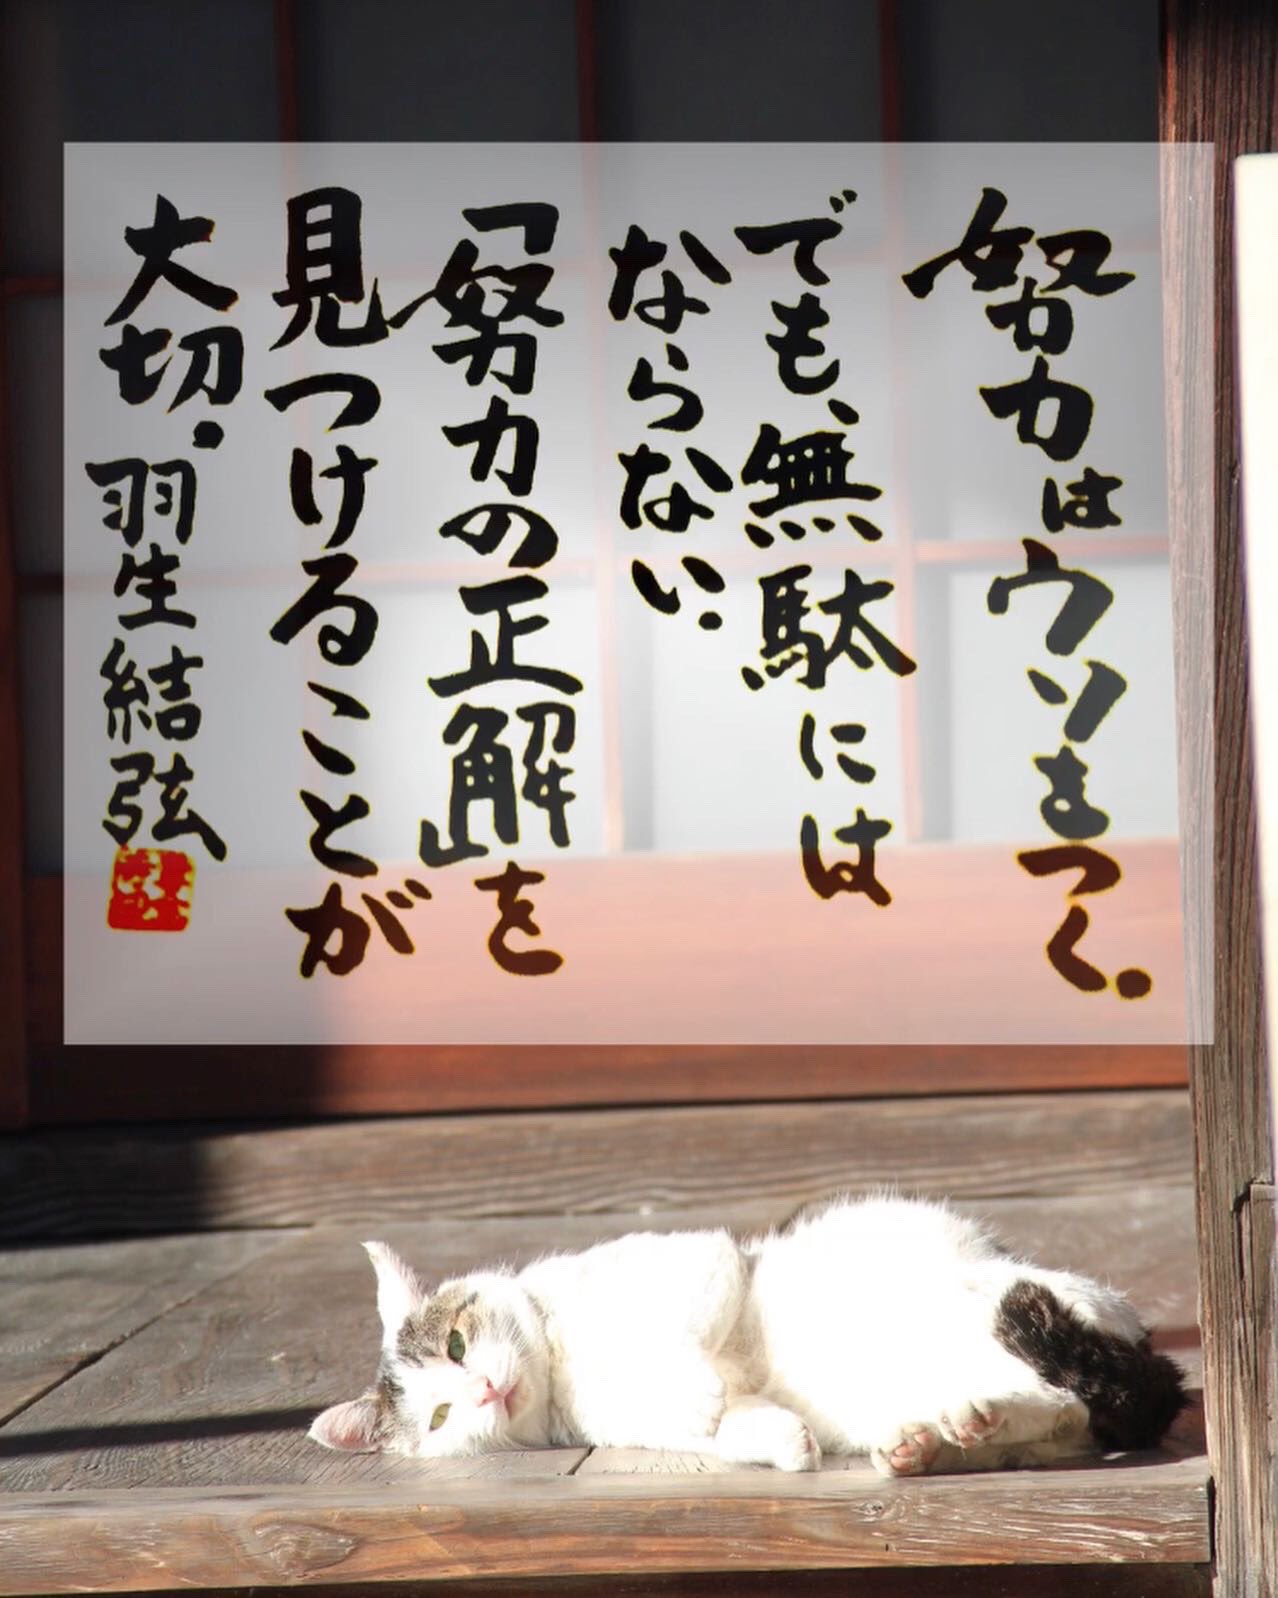 努力はウソをつく。
でも、無駄には
ならない。
「努力の正解を
見つけることが
大切。羽生結弦